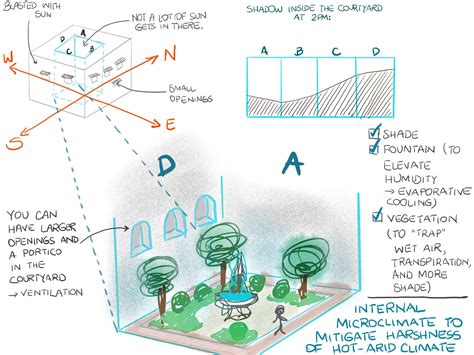 BLASTED WITH
SUN
NOT A LOT OF SUN
GETS IN THERE.
A
B
C
D
W
N
S
E
SMALL
OPENINGS
SHADOW INSIDE THE COURTYARD
AT 2PM:
A B C D
SHADE
FOUNTAIN (TO
ELEVATE
HUMIDITY
→ EVAPORATIVE
COOLING)
VEGETATION
(TO "TRAP"
WET AIR,
TRANSPIRATION,
AND MORE
SHADE)
D A
YOU CAN
HAVE LARGER
OPENINGS AND
A PORTICO
IN THE
COURTYARD
→ VENTILATION
INTERNAL
MICROCLIMATE TO
MITIGATE HARSHNESS
OF HOT-ARID CLIMATE